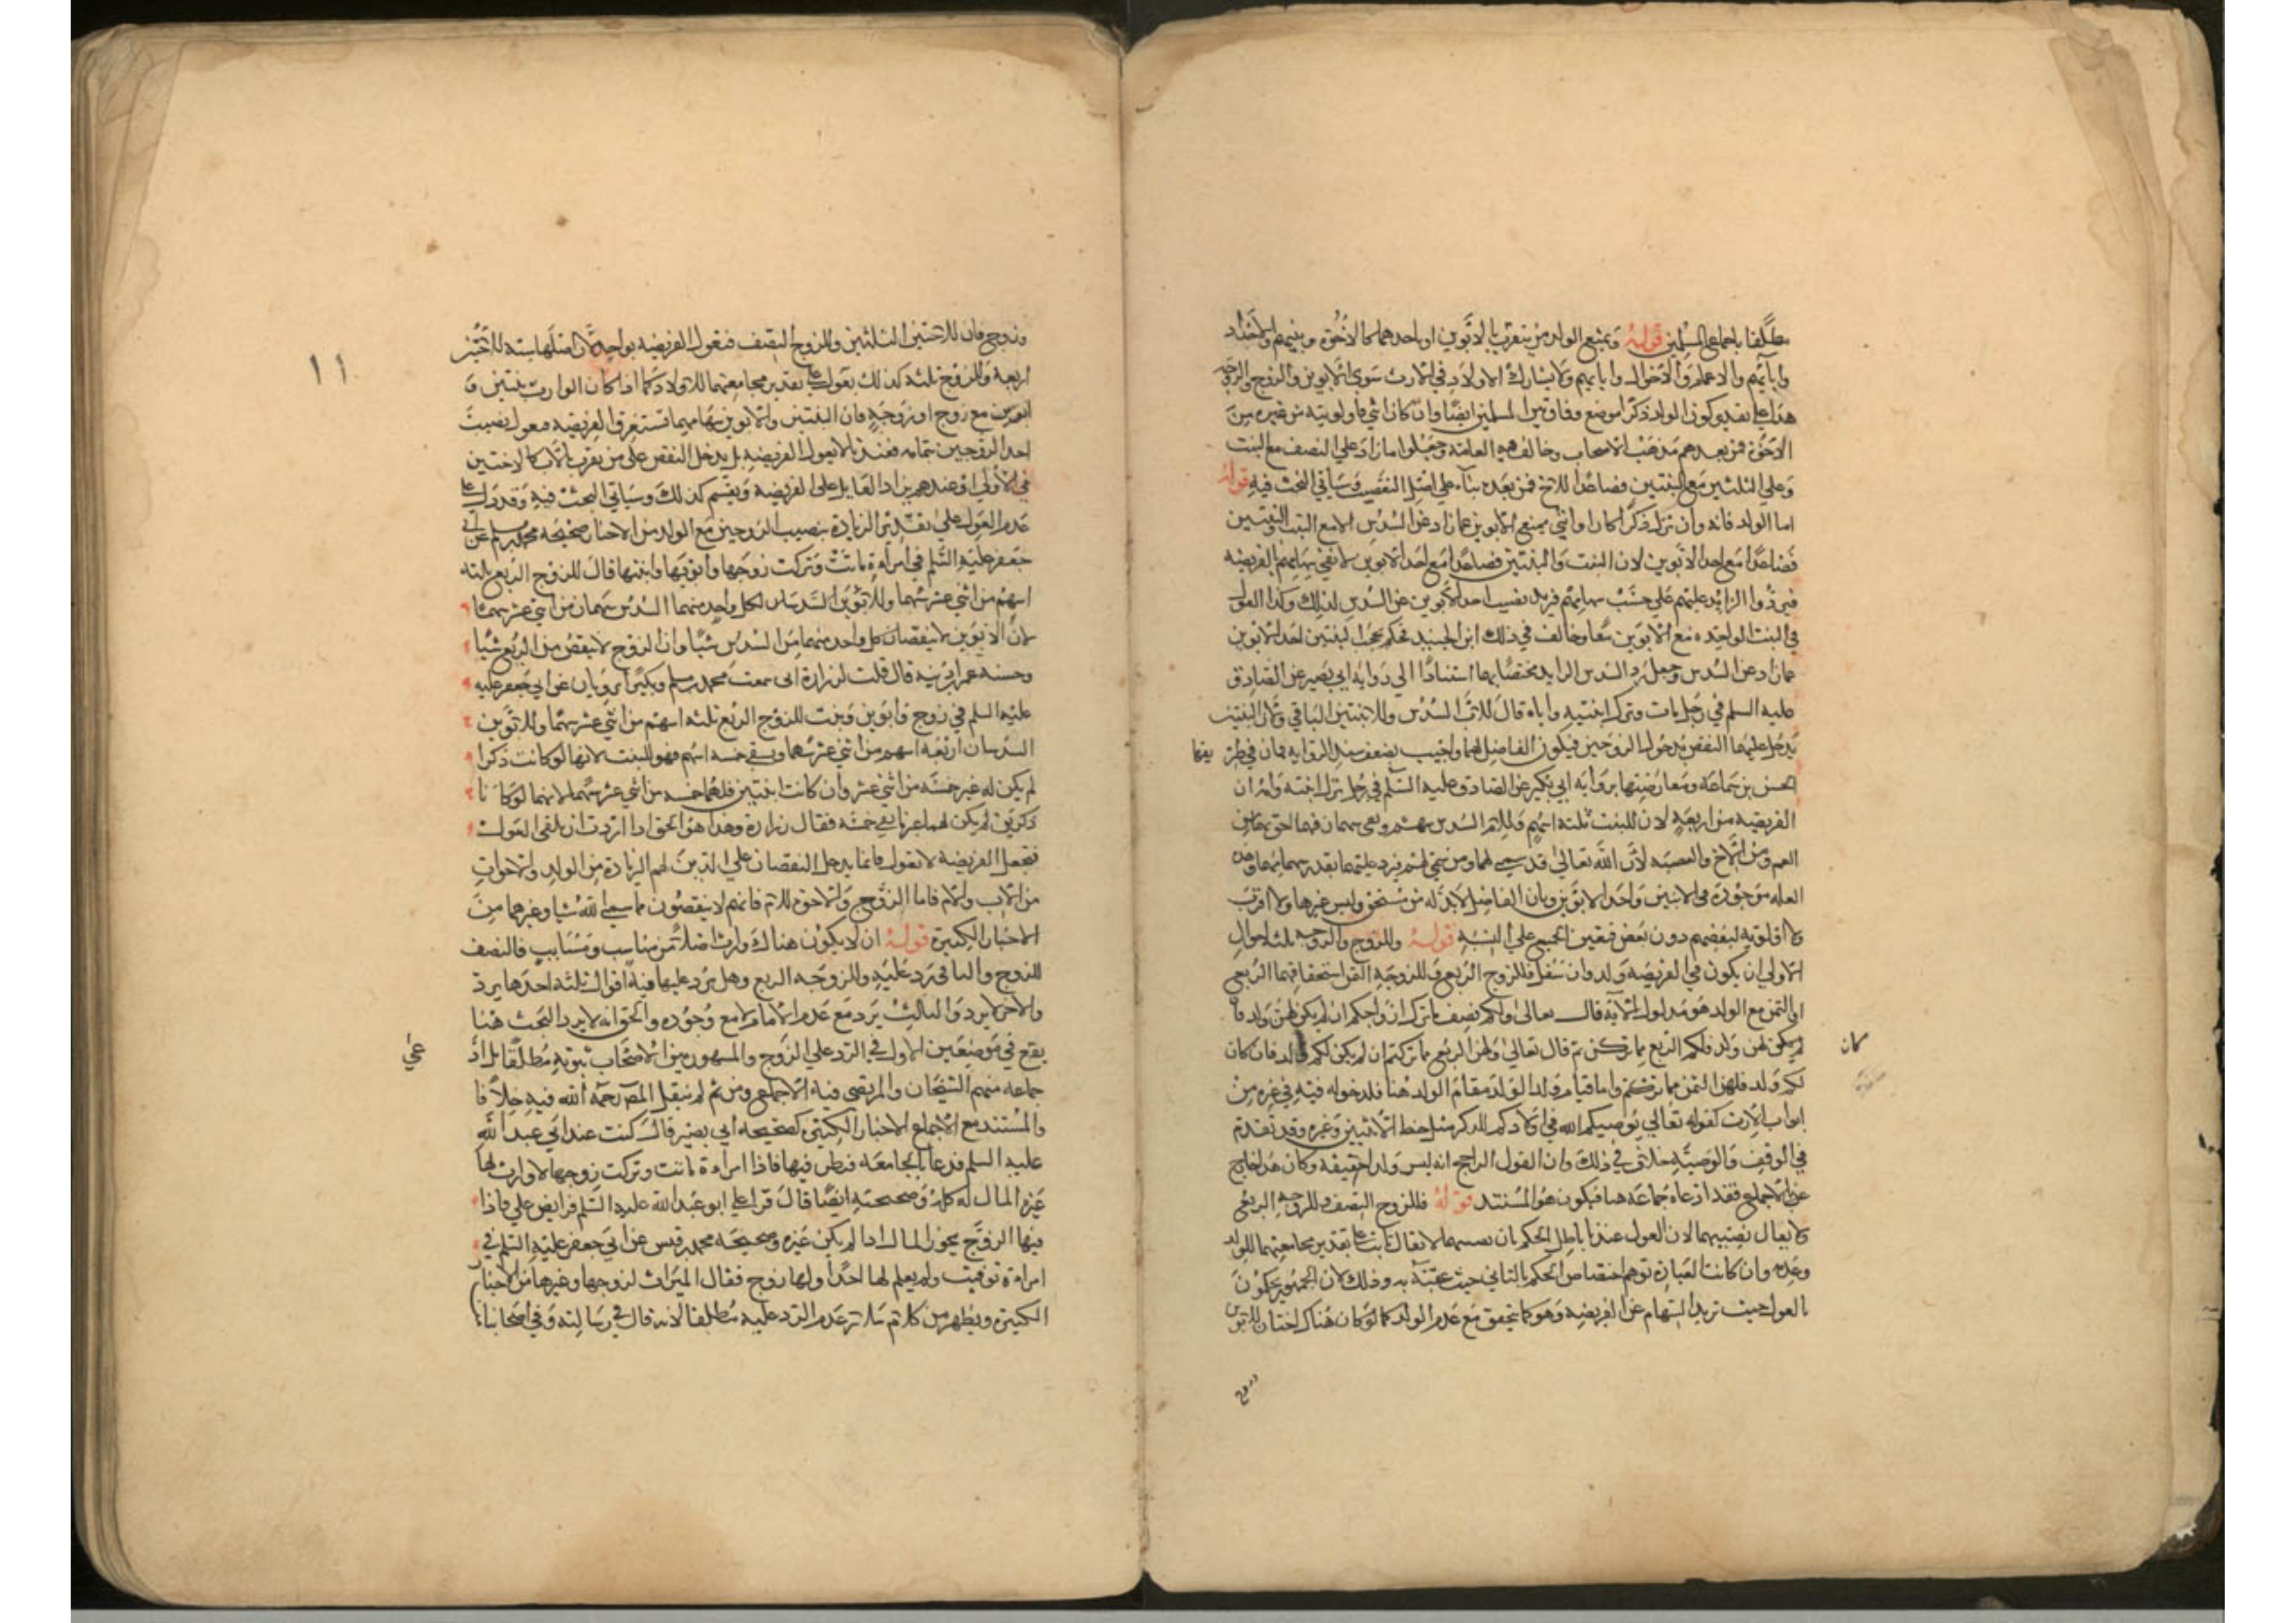 مطلقا باجماع المسلمين قوله ويمنع الولد من يتقرب بالابوين او باحدهما كالاخوة وبنيهم والاجداد
وآبائهم والاعمام والاخوال وابنائهم ولا يشارك الاولاد في الارث سوى الابوين والزوج والزوجه
هذا على تقدير كون الولد ذكرا موضع وفاق بين المسلمين ايضا وان كان انثى فاولويته من غيره من
الاخوة فمن بعدهم مذهب الاصحاب وخالف فيه العامة وجعلوا ما زاد على النصف مع البنت
وعلى الثلثين مع البنتين فصاعدا للاخ فمن بعده بناء على اصل التعصيب وسيأتي البحث فيه قوله
اما الولد فانه وان نزل ذكرا كان او انثى يمنع الابوين عما زاد عن السدس الا مع البنت والبنتين
فصاعدا مع احد الابوين لان البنت والبنتين فصاعدا مع احد الابوين لا تفي سهامهم بالفريضه
فيردوا الزايد عليهم على حسب سهامهم فيزيد نصيب احد الابوين عن السدس لذلك وكذا القول
في البنت الواحده مع الابوين معا وخالف في ذلك ابن الجنيد فحكم بحجب البنتين احد الابوين
عما زاد عن السدس وجعل رد السدس الزايد مختصا بهما استنادا الى رواية ابي بصير عن الصادق
عليه السلم في رجل مات وترك ابنتيه واباه قال للاب السدس وللابنتين الباقي ولان البنتين
يدخل عليهما النقص بدخول الزوجين فيكون الفاضل لهما واجيب بضعف سند الرواية فان في طر يقها
الحسن بن سماعه ومعارضتها برواية ابي بكير عن الصادق عليه السلم في رجل ترك ابنته وامه ان
الفريضه من اربعة لان للبنت ثلثة اسهم وللام السدس سهم وبقي سهمان فهما احق بهما من
العم ومن الاخ والعصبه لان الله تعالى قد سمى لهما ومن سمي لهم فيرد عليهما بقدر سهامهما وهذه
العله موجودة في الابنتين واحد الابوين وبان الفاضل لا بد له من مستحق وليس غيرها ولا اقرب
ولا اولوية لبعضهم دون بعض فتعين الجميع على النسبه قوله وللزوج والزوجه ثلثه احوال
الاولى ان يكون في الفريضه ولد وان سفل فللزوج الربع وللزوجة الثمن استحقاقهما الربع
او الثمن مع الولد هو مدلول الآية قال تعالى ولكم نصف ما ترك ازواجكم ان لم يكن لهن ولد فا
لم يكن لهن ولد فلكم الربع مما تركن ثم قال تعالى ولهن الربع مما تركتم ان لم يكن لكم ولد فان كان
كان
لكم ولد فلهن الثمن مما تركتم واما قيام ولد الولد مقام الولد هنا فلدخوله فيه في غيره من
ابواب الارث كقوله تعالى يوصيكم الله في اولادكم للذكر مثل حظ الانثيين وغيره وقد تقدم
في الوقف والوصية خلاف في ذلك وان القول الراجح انه ليس ولدا حقيقة وكان هذا خارج
عن الاجماع فقد ادعاه جماعه هنا فيكون هو المستند قوله فللزوج النصف وللزوجه الربع
ولا يعال نصيبهما لان العول عندنا باطل الحكم بان نصيبهما لا يعال ثابت على تقدير مجامعتهما للولد
وعدمه وان كانت العبارة توهم اختصاص الحكم بالثاني حيث عقبه به وذلك لان الجمهور يحكمون
بالعول حيث تزيد السهام عن الفريضة وهو كما يتحقق مع عدم الولد كما لو كان هناك اختان للابوين
وزوج
١١
وزوج فان للاختين الثلثين وللزوج النصف فتعول الفريضه بواحد لان اصلها سته للاختين
اربعة وللزوج ثلثه كذلك تعول على تقدير مجامعتهما للاولاد كما اذا كان الوارث بنتين و
ابوين مع زوج او زوجة فان البنتين والابوين سهامهما تستغرق الفريضه فتعول بنصيب
احد الزوجين بتمامه فعندنا لا تعول الفريضة بل يدخل النقص على من يتقرب بالاب كالاختين
في الاولى وعندهم يزاد العايل على الفريضة ويقسم كذلك وسيأتي البحث فيه وقد دل على
عدم العول على تقدير الزيادة بنصيب الزوجين مع الولد من الاخبار صحيحه محمد بن مسلم عن ابي
جعفر عليه السلم في امرأة ماتت وتركت زوجها وابويها وابنتها قال للزوج الربع ثلثه
اسهم من اثني عشر سهما وللابوين السدسان لكل واحد منهما السدس سهمان من اثني عشر سهما
لان الابوين لا ينقصان كل واحد منهما من السدس شيئا وان الزوج لا ينقص من الربع شيئا
وحسنة عمر بن اذينه قال قلت لزرارة اني سمعت محمد بن مسلم وبكيرا يرويان عن ابي جعفر عليه
عليه السلم في زوج وابوين وبنت للزوج الربع ثلثه اسهم من اثني عشر سهما وللابوين
السدسان اربعة اسهم من اثني عشر سهما وبقي خمسه اسهم فهو للبنت لانها لو كانت ذكرا
لم يكن له غير خمسة من اثني عشر وان كانت ابنتين فلهما خمسه من اثني عشر سهما لانهما لو كانا
ذكرين لم يكن لهما غير ما بقي خمسه فقال زرارة وهذا هو الحق اذا اردت ان تلقي العول
فتجعل الفريضه لا تعول فانما يدخل النقصان على الذين لهم الزيادة من الولد والاخوات
من الاب والام فاما الزوج والاخوة للام فانهم لا ينقصون مما سمى الله شيئا وغيرهما من
الاخبار الكثيرة قوله ان لا يكون هناك وارث اصلا من مناسب ومسابب فالنصف
للزوج والباقي يرد عليه وللزوجه الربع وهل يرد عليها فيه اقوال ثلثة احدها يرد
والاخر لا يرد والثالث يرد مع عدم الامام لا مع وجوده والحق انه لا يرد البحث هنا
يقع في موضعين الاول في الرد على الزوج والمشهور بين الاصحاب ثبوته مطلقا بل اد
عى
جماعه منهم الشيخان والمرتضى فيه الاجماع ومن ثم لم ينقل المص رحمه الله فيه خلافا
والمستند مع الاجماع الاخبار الكثيرة كصحيحه ابي بصير قال كنت عند ابي عبد الله
عليه السلم فدعا بالجامعه فنظر فيها فاذا امرأة ماتت وتركت زوجها لا وارث لها
غيره المال له كله وصحيحته ايضا قال قرأ علي ابو عبد الله عليه السلم فرايض علي فاذا
فيها الزوج يحوز المال اذا لم يكن غيره وصحيحه محمد بن قيس عن ابي جعفر عليه السلم في
امرأة توفيت ولم يعلم لها احد ولها زوج فقال الميراث لزوجها وغيرها من الاخبار
الكثيرة ويظهر من كلام سلار عدم الرد عليه مطلقا لانه قال في رسالته وفي اصحابنا